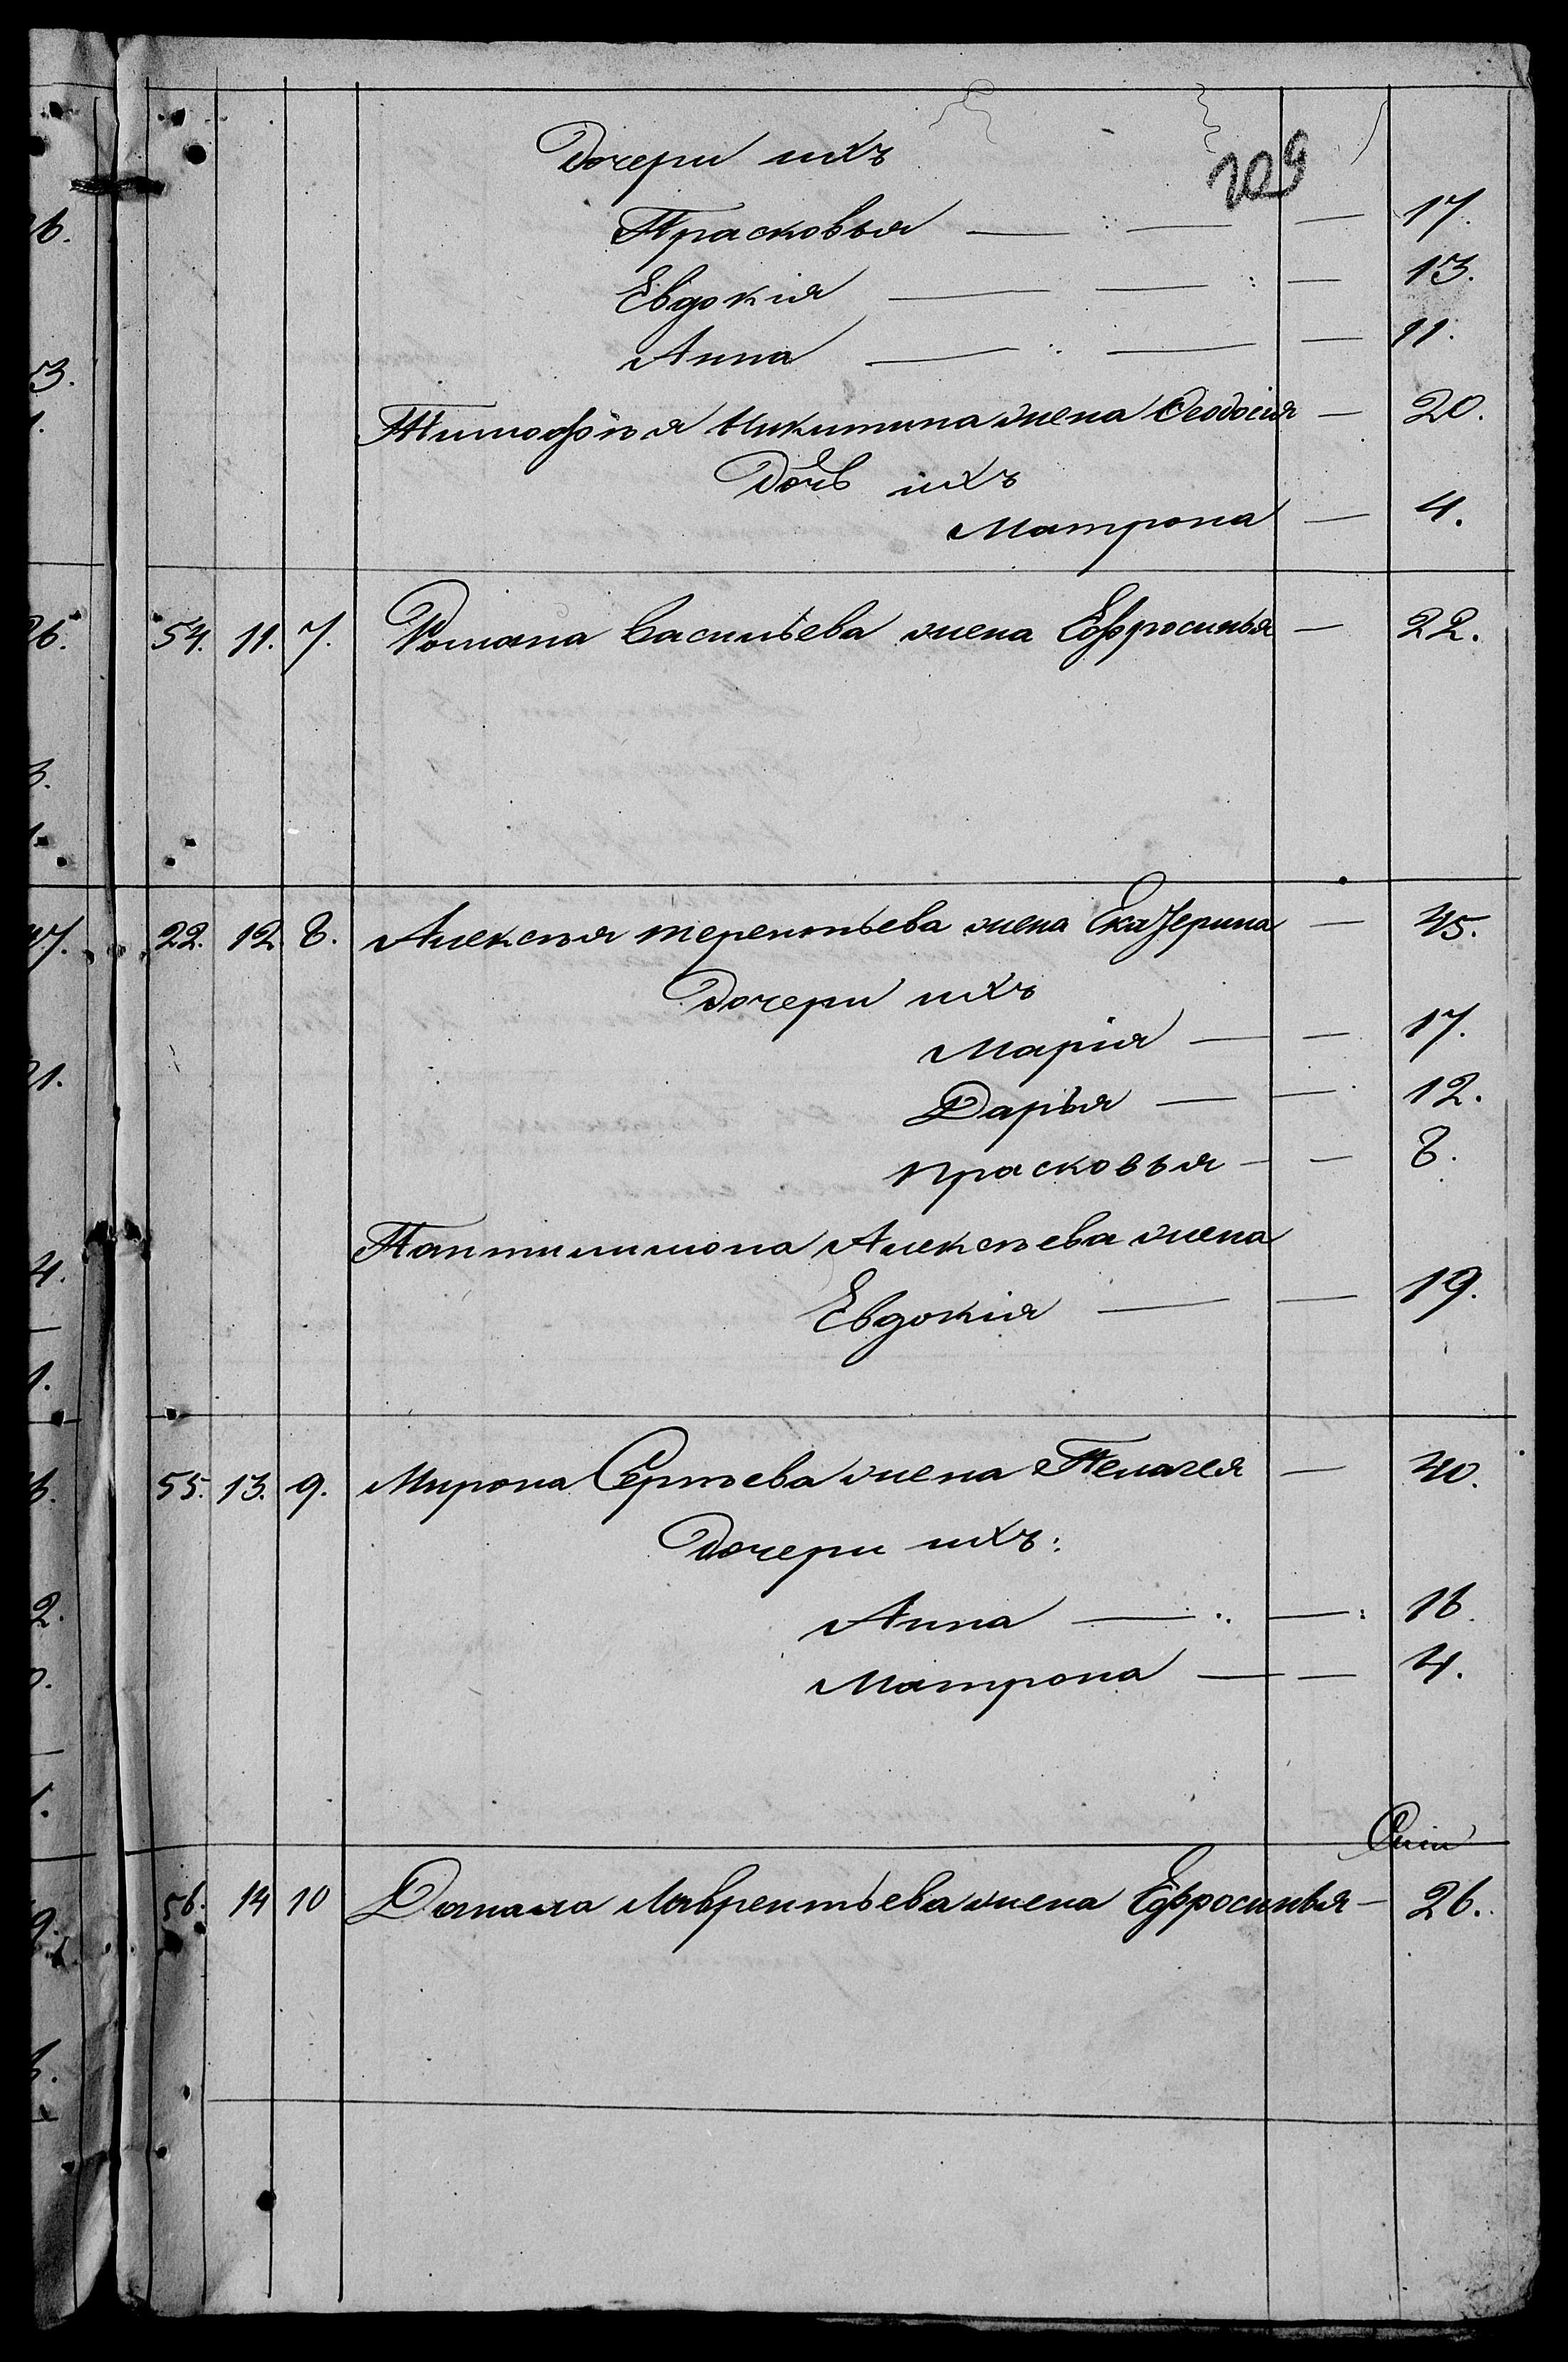 109
Дочери ихъ
Прасковья — — — 17.
Евдокія — — — 13.
Анна — — — 11.
Тимофѣя Никитина жена Ѳеодосія — 20.
Дочь ихъ
Матрона — 4.
54. 11. 7. Романа Васильева жена Ефросинья — 22.
22. 12 8. Алексѣя терентьева жена Екатерина — 45.
Дочери ихъ
Марія — — 17.
Дарья — — 12.
прасковья — — 8.
Пантилимона Алексѣева жена
Евдокія — — 19.
55. 13. 9. Мирона Сергѣева жена Пелагея — 40.
Дочери ихъ:
Анна — — 16.
Матрона — — 4.
56. 14 10 Данила Лаврентьева жена Ефросинья — 26.